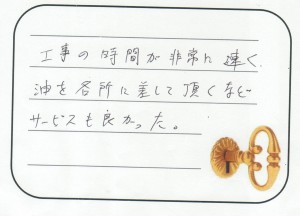 工事の時間が非常に速く、
油を各所に差して頂くなど
サービスも良かった。